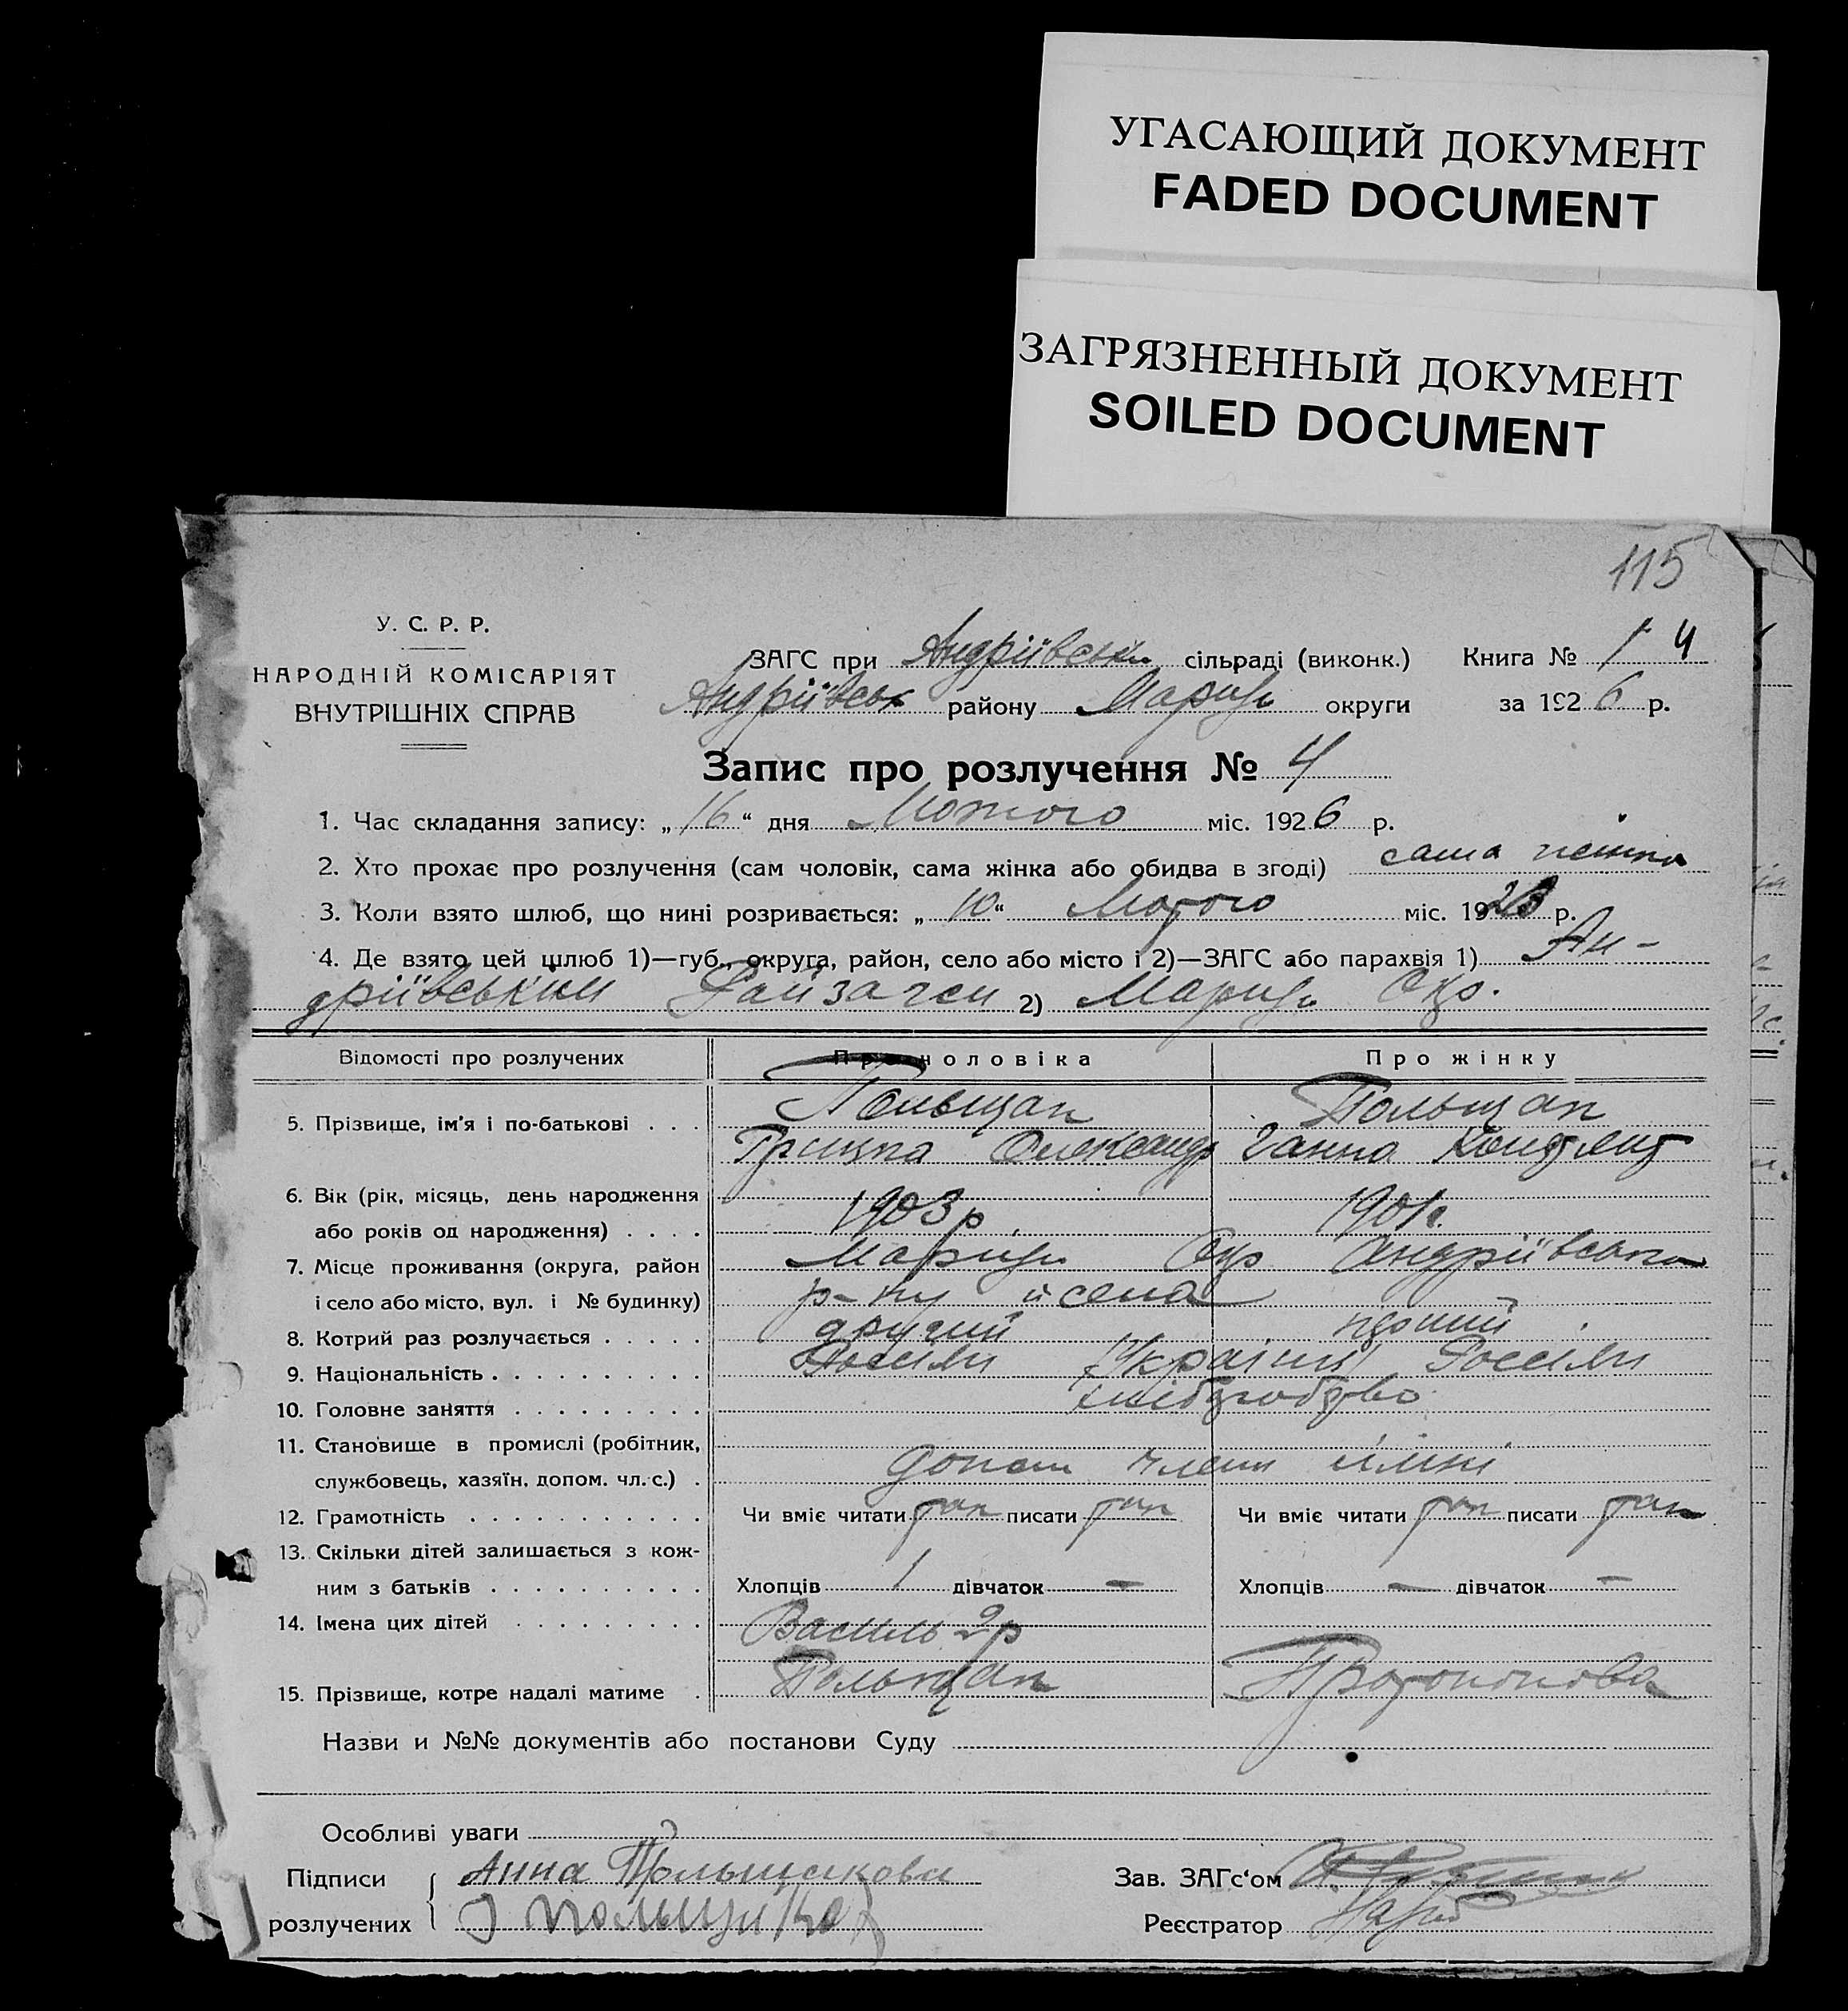 УГАСАЮЩИЙ ДОКУМЕНТ
FADED DOCUMENT
ЗАГРЯЗНЕННЫЙ ДОКУМЕНТ
SOILED DOCUMENT
115
У. С. Р. Р.
НАРОДНІЙ КОМІСАРІЯТ
ВНУТРІШНІХ СПРАВ
ЗАГС при Андріївськім сільраді (виконк.) Книга № 1 4
Андріївськ району Маріуп округи за 1926 р.
Запис про розлучення № 4
1. Час складання запису: „16“ дня Лютого міс. 1926 р.
2. Хто прохає про розлучення (сам чоловік, сама жінка або обидва в згоді) сама жінка
3. Коли взято шлюб, що нині розривається: „10“ Лютого міс. 1923 р.
4. Де взято цей шлюб 1)—губ., округа, район, село або місто і 2)—ЗАГС або парахвія 1) Ан-
дріївським Райзагсм 2) Маріуп Окр.
Відомості про розлучених Про чоловіка Про жінку
5. Прізвище, ім'я і по-батькові . . . Польщак Польщак
Грицька Олександр Ганна Кондрат
6. Вік (рік, місяць, день народження
або років од народження) . . . . 1903 р. 1901 р.
7. Місце проживання (округа, район Маріуп Окр Андріївсько
і село або місто, вул. і № будинку) р-ну й села
8. Котрий раз розлучається . . . . . другий перший
9. Національність . . . . . . . . . . Україн
10. Головне заняття . . . . . . . . . хліборобство
11. Становище в промислі (робітник,
службовець, хазяїн, допом. чл. с.) . допом члени сімї
12. Грамотність . . . . . . . . . . . Чи вміє читати так писати так Чи вміє читати так писати так
13. Скільки дітей залишається з кож-
ним з батьків . . . . . . . . . . Хлопців 1 дівчаток — Хлопців — дівчаток —
14. Імена цих дітей . . . . . . . . . Василь 2 р
15. Прізвище, котре надалі матиме . Польщак Протопопова
Назви и №№ документів або постанови Суду
Особливі уваги
Підписи Анна Польщикова Зав. ЗАГс'ом
розлучених Реєстратор